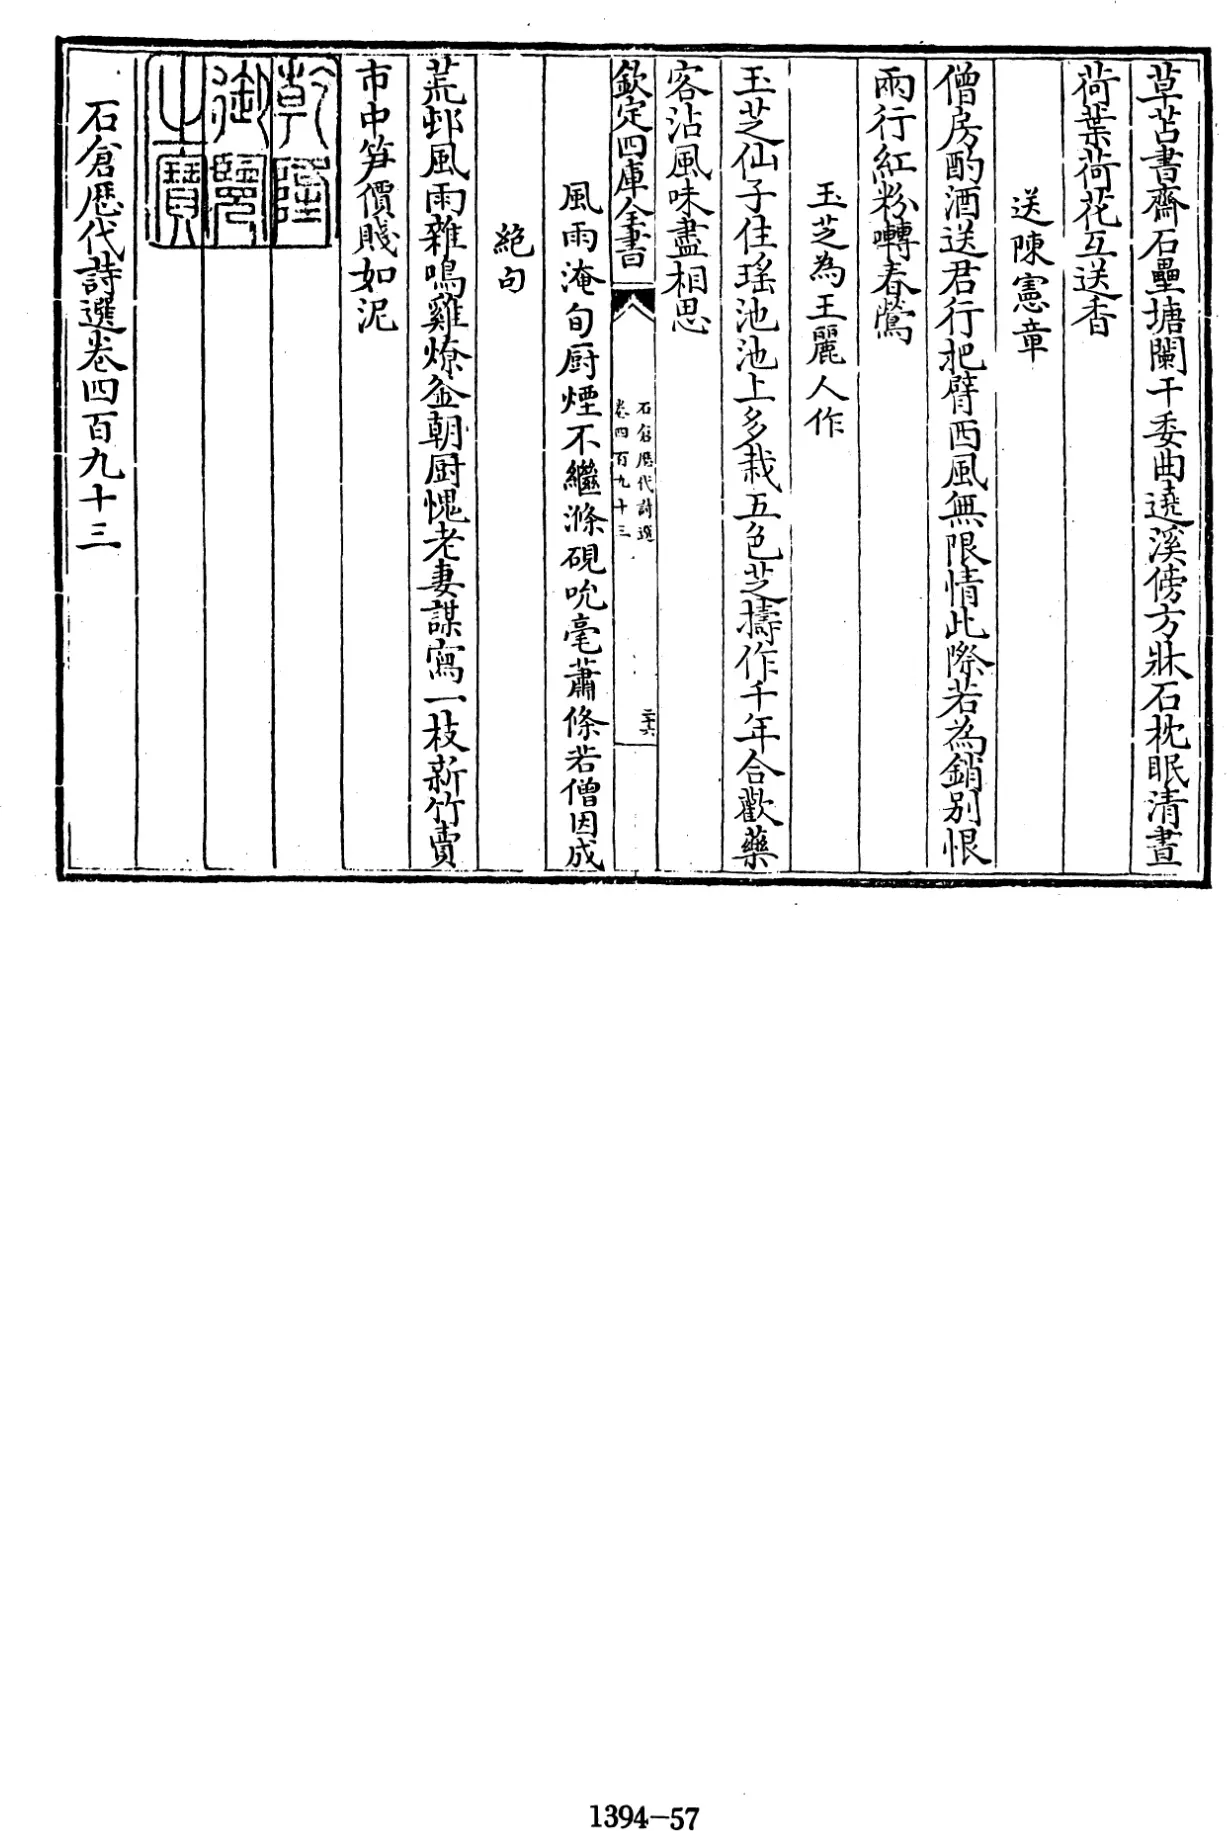 草苫書齋石壘塘闌干委曲遶溪傍方牀石枕眠清晝
荷葉荷花互送香
送陳憲章
僧房酌酒送君行把臂西風無限情此際若為銷别恨
兩行紅粉囀春鶯
玉芝為王麗人作
玉芝仙子住瑶池池上多栽五色芝擣作千年合歡藥
客沾風味盡相思
欽定四庫全書
石倉歷代詩選
卷四百九十三
二十六
風雨淹旬厨煙不繼滌硯吮毫蕭條若僧因成
絶句
荒邨風雨雜鳴雞燎釡朝厨愧老妻謀寫一枝新竹賣
市中笋價賤如泥
乾隆
御覽
之寶
石倉歷代詩選卷四百九十三
1394-57